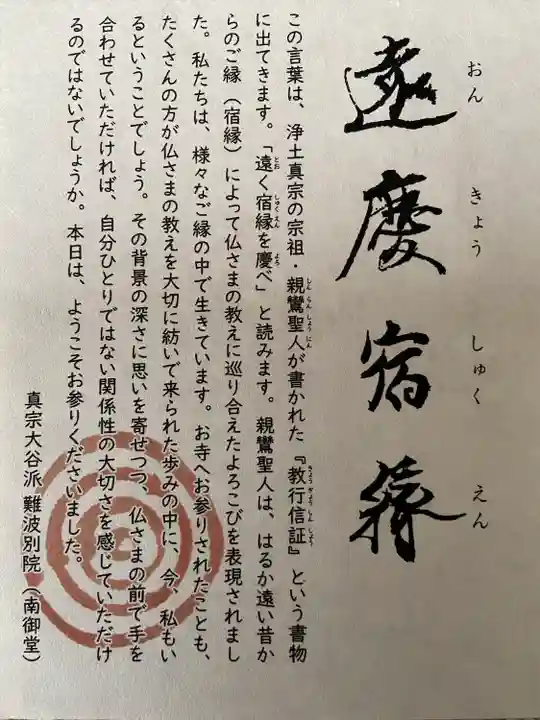 遠慶宿縁
おん きょう しゅく えん
この言葉は、浄土真宗の宗祖・親鸞聖人が書かれた『教行信証』という書物
に出てきます。「遠く宿縁を慶べ」と読みます。親鸞聖人は、はるか遠い昔か
らのご縁（宿縁）によって仏さまの教えに巡り合えたよろこびを表現されまし
た。私たちは、様々なご縁の中で生きています。お寺へお参りされたことも、
たくさんの方が仏さまの教えを大切に紡いで来られた歩みの中に、今、私もい
るということでしょう。その背景の深さに思いを寄せつつ、仏さまの前で手を
合わせていただければ、自分ひとりではない関係性の大切さを感じていただけ
るのではないでしょうか。本日は、ようこそお参りくださいました。
真宗大谷派 難波別院（南御堂）